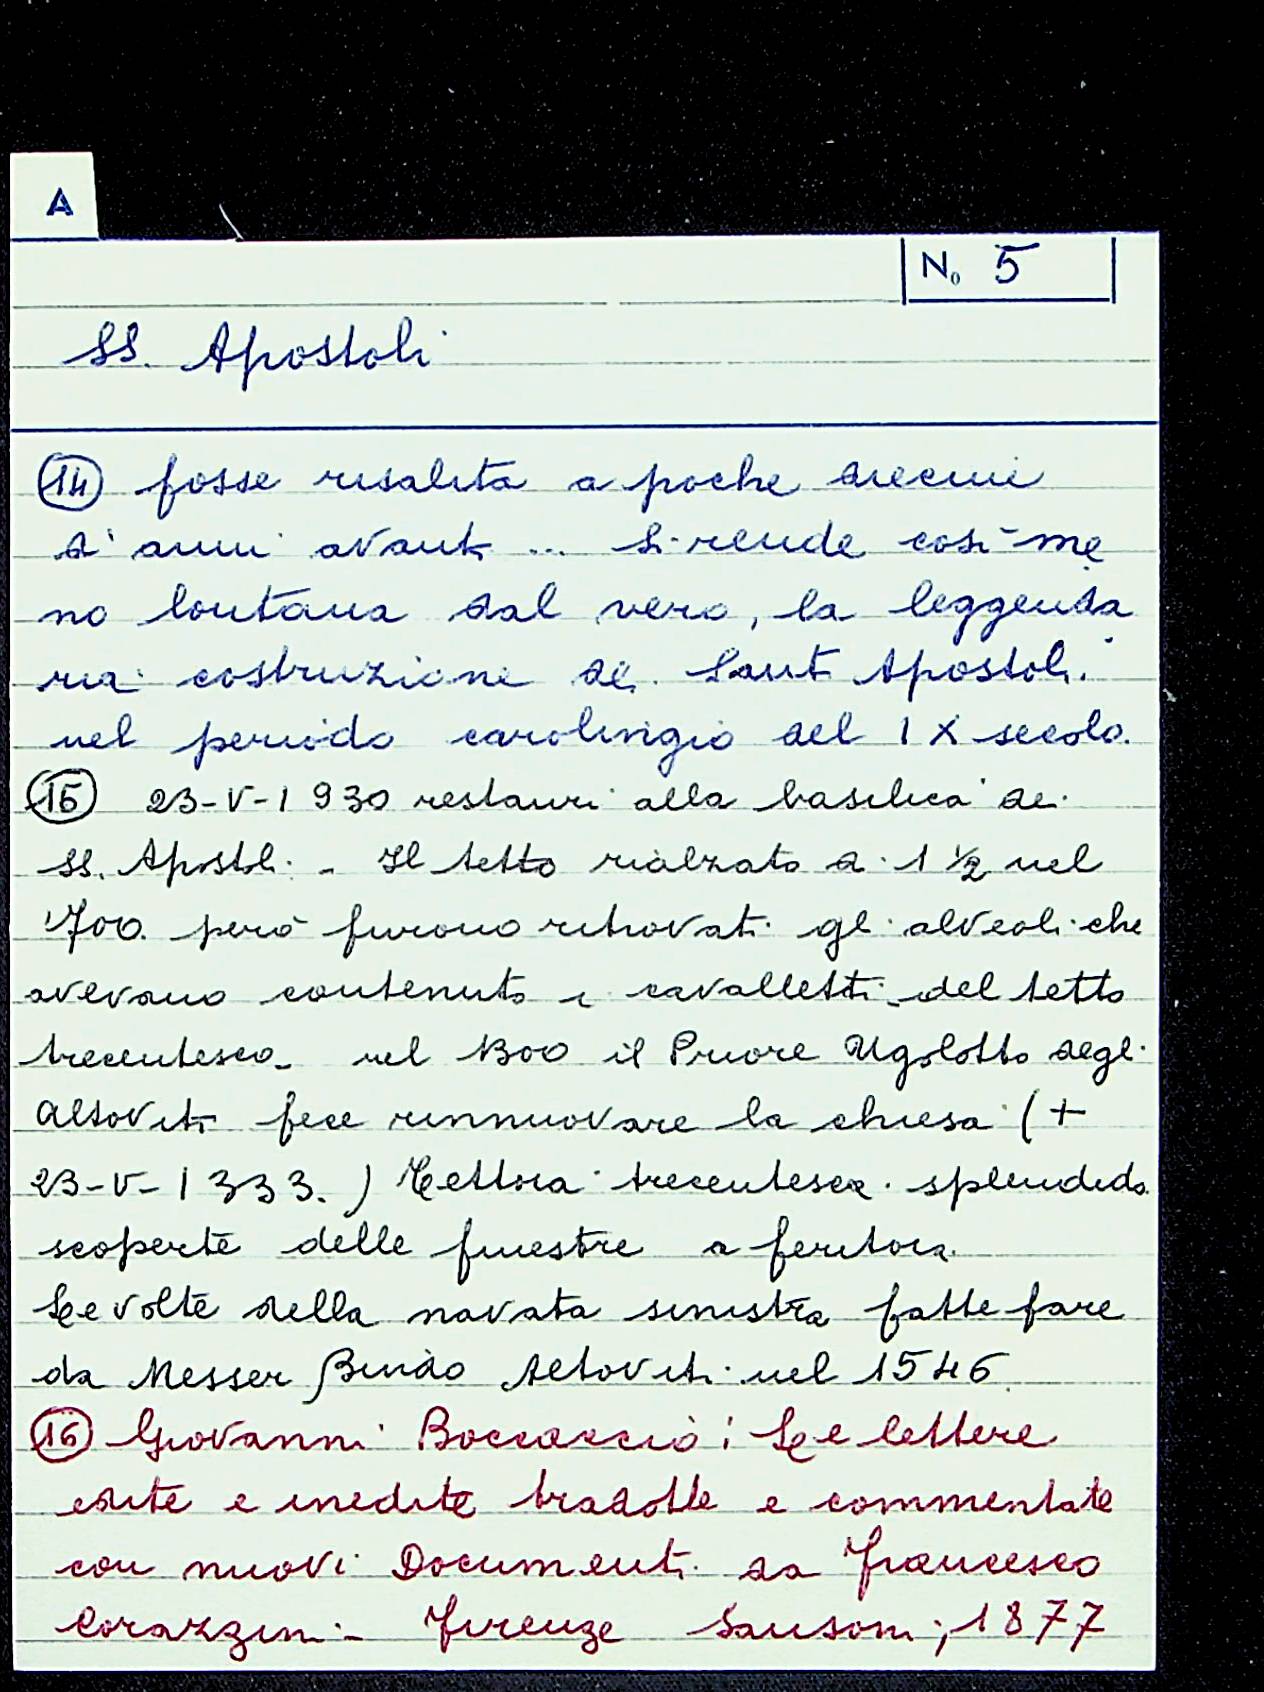 A
No 5
SS. Apostoli
14 fosse risalita a poche diecine
d'anni avanti ... Si rende così me
no lontana dal vero, la leggenda
ria costruzione dei Santi Apostoli
nel periodo carolingio del IX secolo.
15 23-V-1930 restauri alla basilica dei
SS. Apostoli - Il tetto rialzato di 1 1/2 nel
'700. però furono ritrovati gli alveoli che
avevano contenuto i cavalletti del tetto
trecentesco - nel 1300 il Priore Ugolotto degli
Altoviti fece rinnuovare la chiesa (+
23-V-1333.) Tettoia trecentesca splendida
scoperte delle finestre a feritoia.
Le volte della navata sinistra fatte fare
da Messer Bindo Altoviti nel 1546
16 Giovanni Boccaccio: Le lettere
edite e inedite tradotte e commentate
con nuovi Documenti da Francesco
Corazzini - Firenze Sansoni, 1877